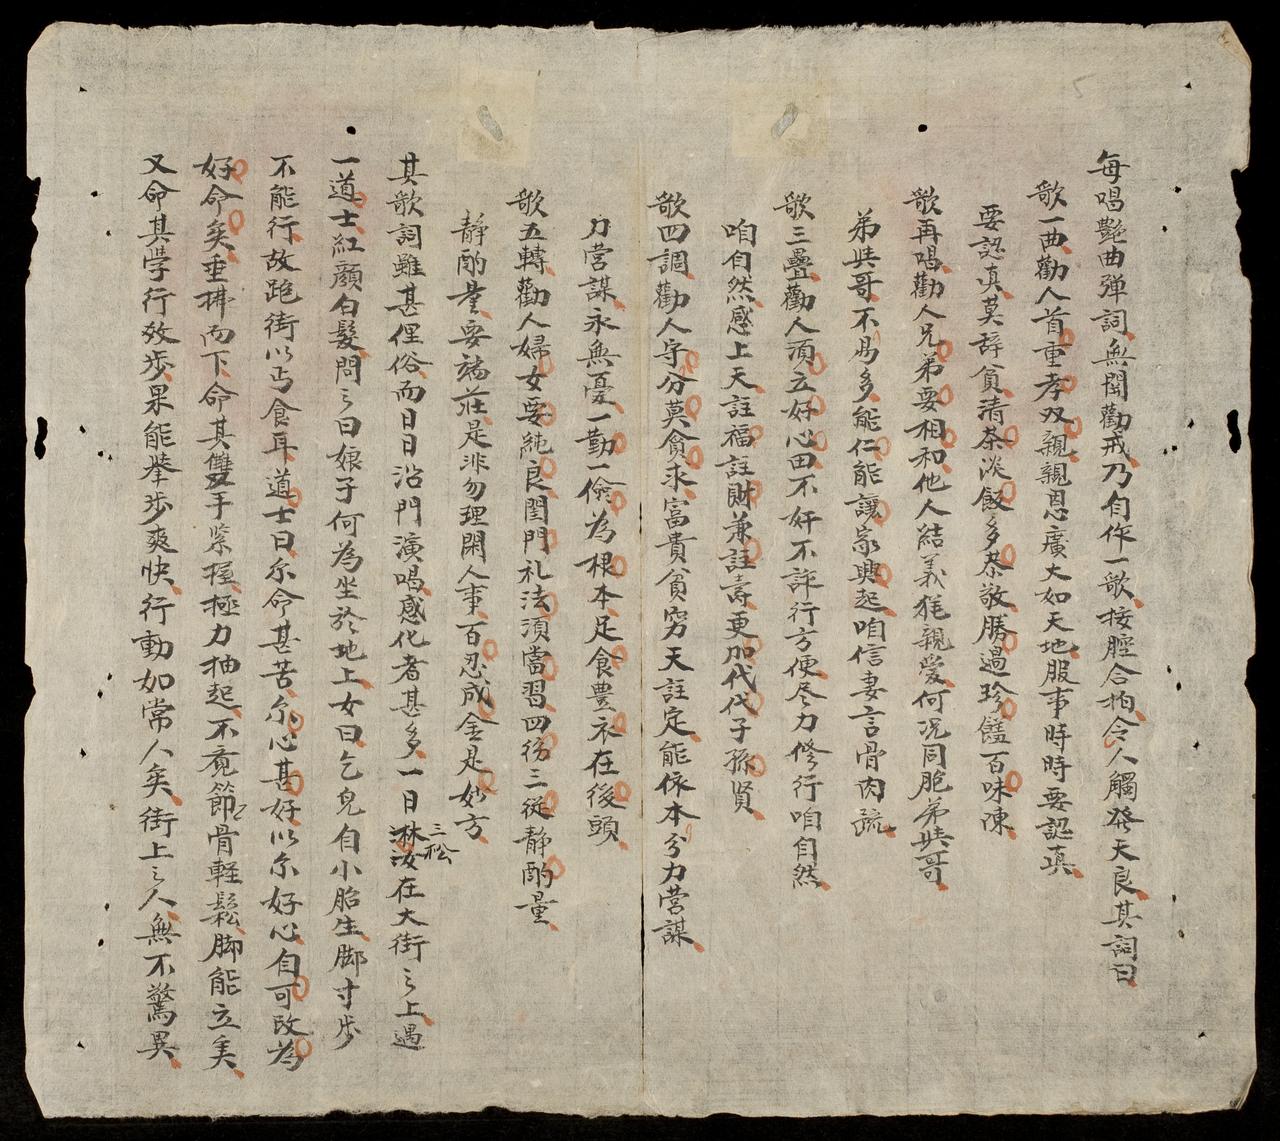 每唱艷曲弹詞無關勸戒乃自作一歌按腔合拍令人觸發天良其詞曰
歌一曲勸人首重孝双親親恩廣大如天地服事時時要認真
要認真莫辞貧清茶淡飯多恭敬勝過珍饈百味陳
歌再唱勸人兄弟要相和他人結義犹親愛何况同胞弟與哥
弟與哥不昜多能仁能讓家興起咱信妻言骨肉疏
歌三疊勸人須立好心田不奸不詐行方便尽力修行咱自然
咱自然感上天註福註財兼註壽更加代代子孫賢
歌四調勸人守分莫貪求富貴貧穷天註定能依本分力营謀
力营謀永無憂一勤一儉為根本足食豊衣在後頭
歌五轉勸人婦女要純良閨門礼法須當習四德三從静酌量
静酌量要端莊是非勿理閑人事百忍成金是妙方
其歌詞雖甚俚俗而日日沿門演唱感化者甚多一日三松在大街之上遇
一道士紅顔白髮問之曰娘子何為坐於地上女曰乞兒自小胎生脚寸步
不能行故跪街以丐食耳道士曰尔命甚苦尔心甚好以尔好心自可改為
好命矣垂拂而下命其雙手紧握極力抽起不竟節骨軽鬆脚能立矣
又命其學行效步果能举步爽快行動如常人矣街上之人無不驚異